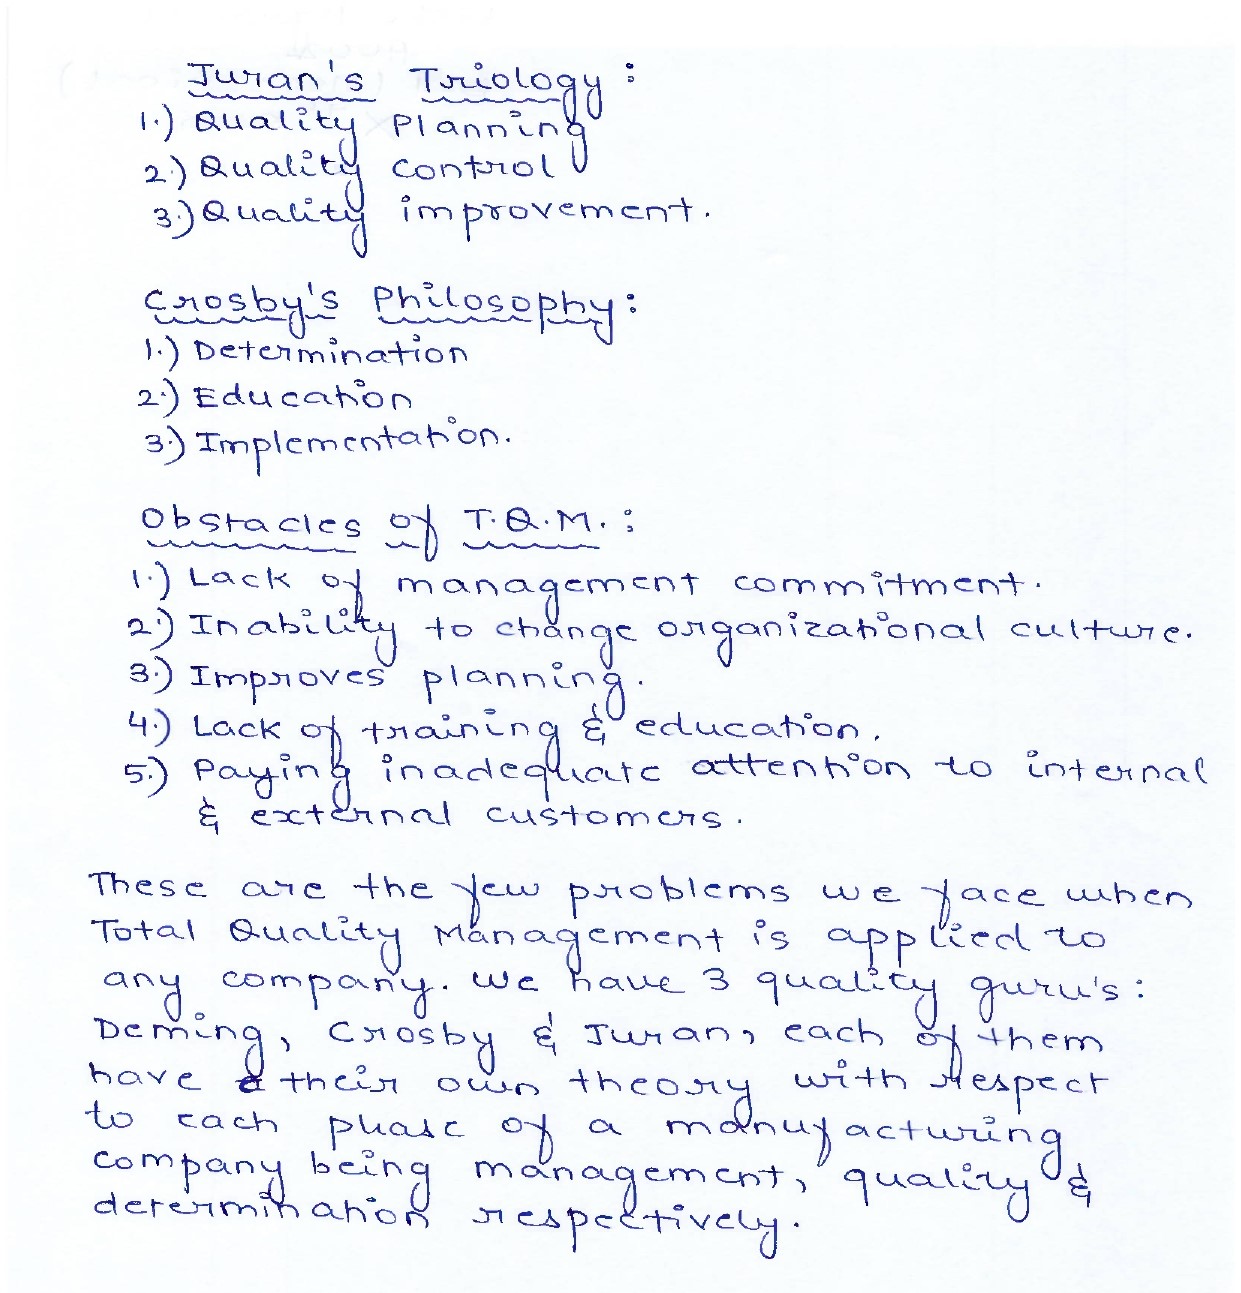 Juran's Triology :
1.) Quality Planning
2.) Quality control
3.) Quality improvement.
Crosby's Philosophy :
1.) Determination
2.) Education
3.) Implementation.
Obstacles of T.Q.M. :
1.) Lack of management commitment.
2.) Inability to change organizational culture.
3.) Improves planning.
4.) Lack of training & education.
5.) Paying inadequate attention to internal
& external customers.
These are the few problems we face when
Total Quality Management is applied to
any company. We have 3 quality guru's :
Deming, Crosby & Juran, each of them
have their own theory with respect
to each phase of a manufacturing
company being management, quality &
determination respectively.